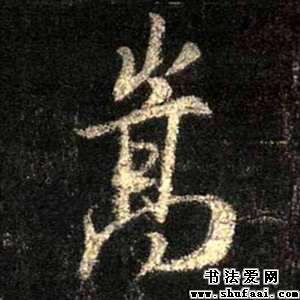 嵩
书法爱网
www.shufaai.com